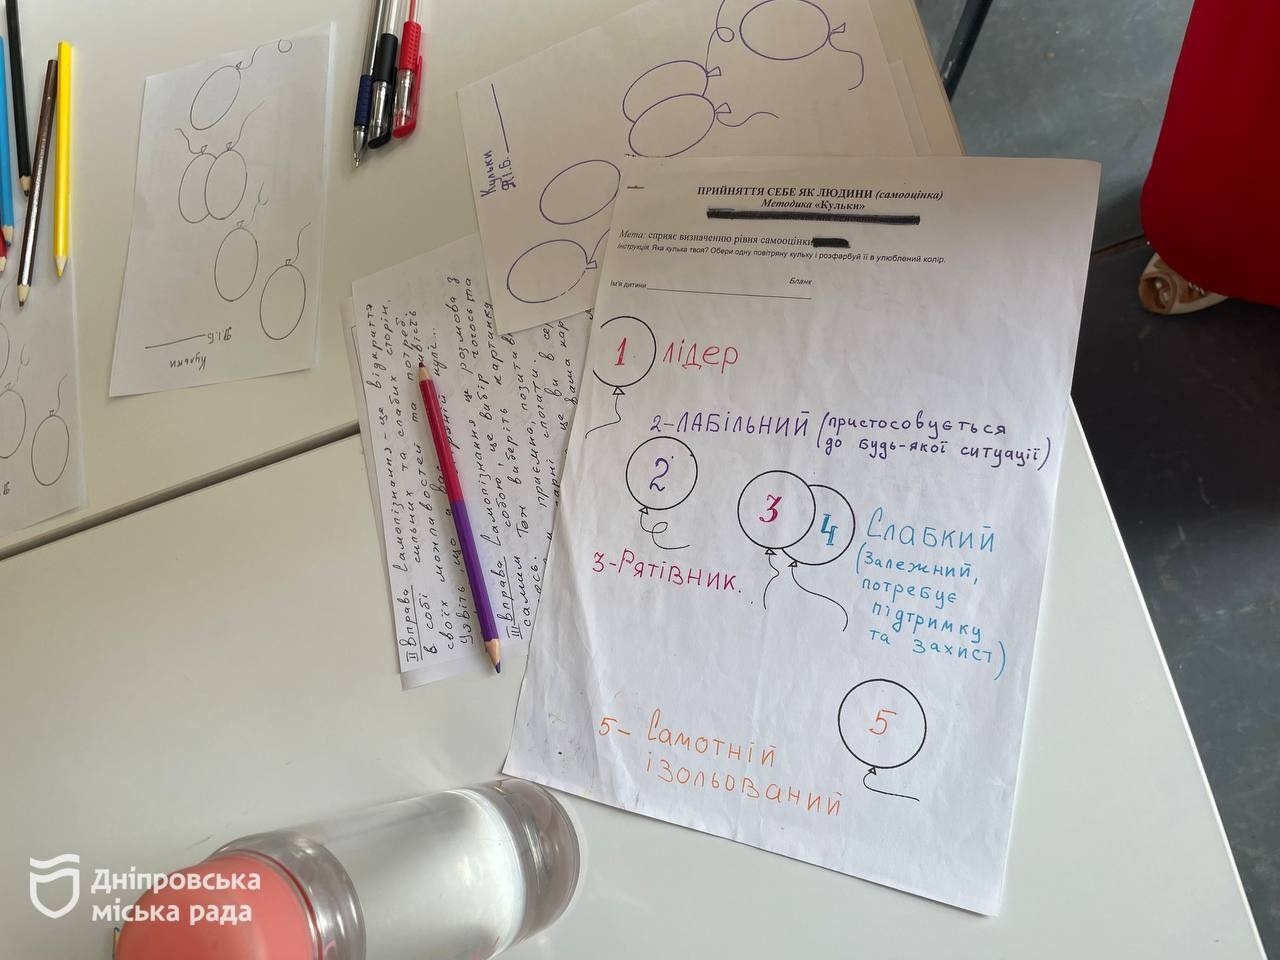 ПРИЙНЯТТЯ СЕБЕ ЯК ЛЮДИНИ (самооцінка)
Методика «Кульки»
Мета: сприяє визначенню рівня самооцінки
Інструкція. Яка кулька твоя? Обери одну повітряну кульку і розфарбуй її в улюблений колір.
Бланк
Ім'я дитини
1 лідер
2-ЛАБІЛЬНИЙ (пристосовується
до будь-якої ситуації)
2
3
4
Слабкий
(Залежний,
потребує
підтримку
та захист)
3-Рятівник..
5
5- Самотній
ізольований
Кульки
П.І.Б.
Кульки
П.І.Б.
ІІ Вправа Самопізнання - це відкриття
в собі сильних та слабких сторін,
своїх можливостей та потреб.
Уявіть, що
ІІІ Вправа Самопізнання це розмова з
собою, це вибір
самим Тож виберіть картинку
приємна, позити
гарні спогади в сер
це ваша кар
Дніпровська
міська рада